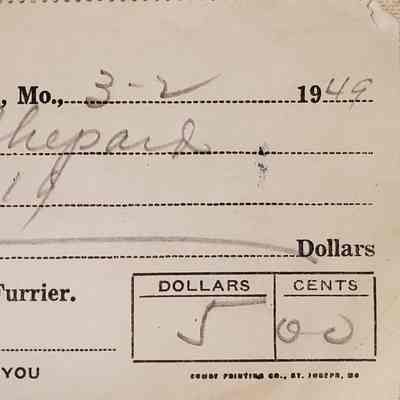 , Mo., 3-2 1949
Shepard
19
Dollars
Furrier.
DOLLARS CENTS
5 00
YOU
COMBE PRINTING CO., ST. JOSEPH, MO